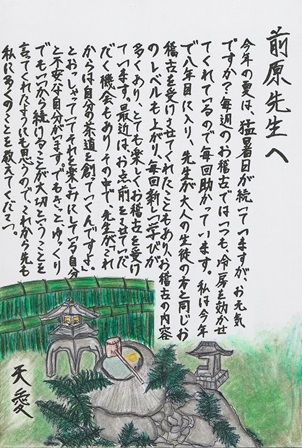 前原先生へ
今年の夏は、猛暑日が続いていますが、お元気
ですか？毎週のお稽古ではいつも、冷房を効かせ
てくれているので毎回助かっています。私は今年
で八年目に入り、先生が大人の生徒の方と同じお
稽古を受けさせてくれたこともあり、お稽古の内容
のレベルも上がり、毎回新しい学びが
多くあり、とても楽しくお稽古を受け
ています。最近はお点前をさせていた
だく機会もあり、その中で、先生が「これ
からは自分の茶道を創っていくんですよ。」
とおっしゃっていてそれを楽しみにしている自分
と不安な自分がいます。でもきっと、ゆっくり
でもいいから続けることが大切ということを
言ってくれたようにも思うので、これから先も
私に多くのことを教えてください。
天愛